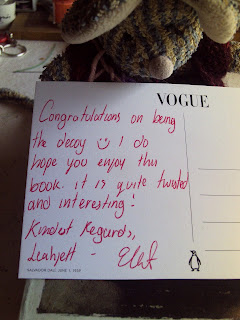 VOGUE
Congratulations on being
the decoy :) I do
hope you enjoy this
book. it is quite twisted
and interesting!
Kindest Regards,
SALVADOR DALI, JUNE 1, 1939